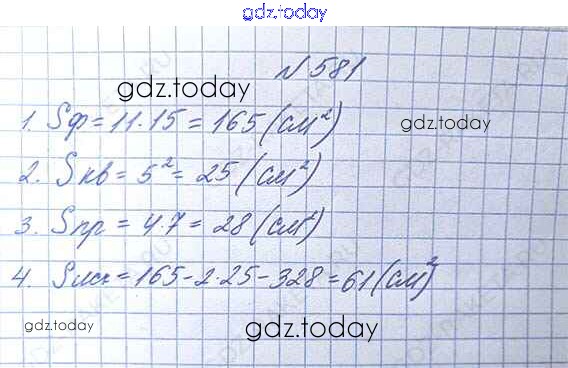 gdz.today
№ 581
gdz.today
1. Sф = 11·15 = 165 (см²)
gdz.today
2. Sкв = 5² = 25 (см²)
3. Sпр = 4·7 = 28 (см²)
4. Sиск = 165-2·25-328 = 61 (см²)
gdz.today
gdz.today